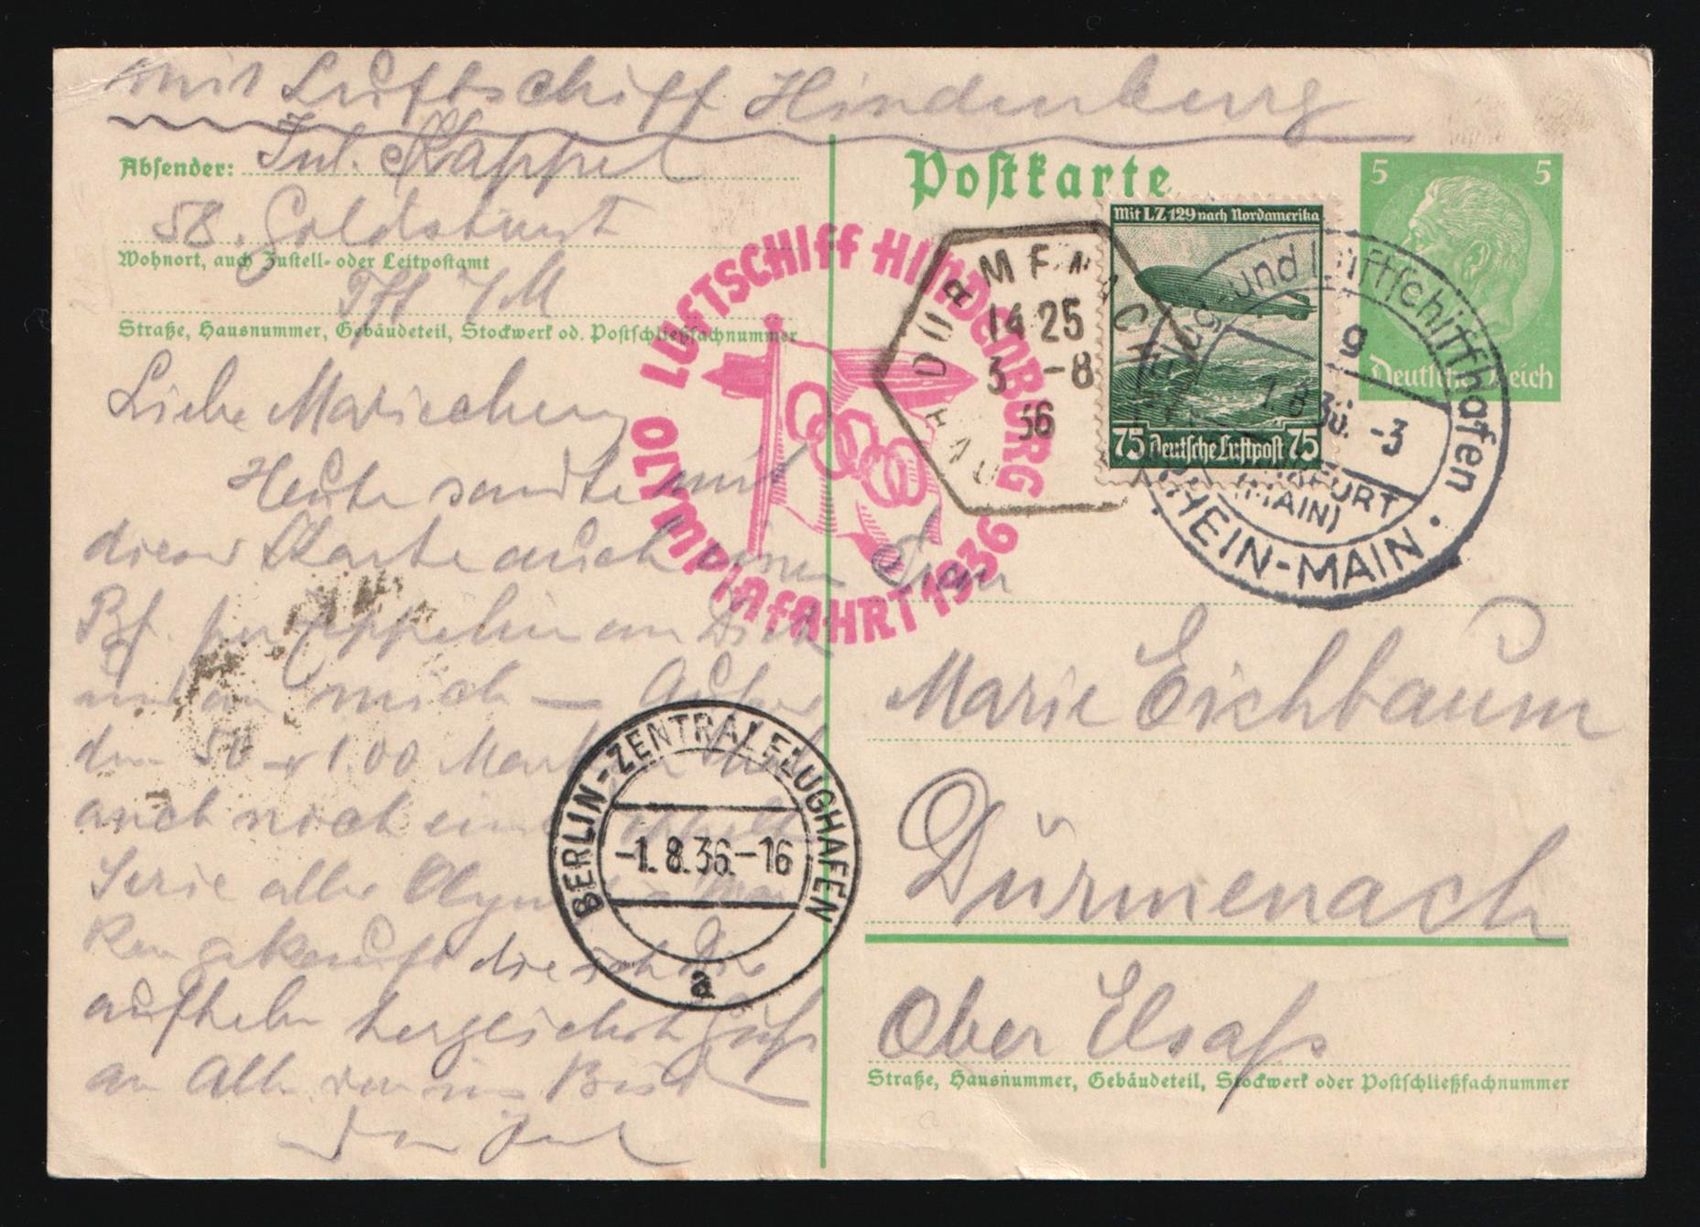 mit Luftschiff Hindenburg
Absender: Jul. Kappel
58. Goldsteinst
Wohnort, auch Zustell- oder Leitpostamt
Fft a/M
Straße, Hausnummer, Gebäudeteil, Stockwerk od. Postschließfachnummer
Liebe Mariechen
Heute sandte mit
dieser Karte auch einen
Bf. per Zeppelin an Dich
und an mich —
den 50 + 1.00 Marken
auch noch eine
Serie aller
gekauft die ich Dir
aufheben
an Alle
Dein Jul
Postkarte
5 5
Deutsches Reich
Mit LZ 129 nach Nordamerika
75 Deutsche Luftpost 75
LUFTSCHIFF HINDENBURG
OLYMPIAFAHRT 1936
DURMENACH
14 25
3 -8
36
HAUT
Flug- und Luftschiffhafen
g
1.8.36.-3
FRANKFURT
(MAIN)
RHEIN-MAIN
BERLIN-ZENTRALFLUGHAFEN
-1.8.36.-16
a
Marie Eichbaum
Dürmenach
Ober Elsaß
Straße, Hausnummer, Gebäudeteil, Stockwerk oder Postschließfachnummer